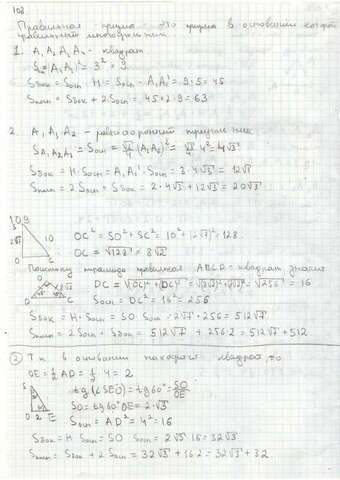 108
Правильная призма - это призма в основании которой
правильный многоугольник
1. A₁ A₂ A₃ A₄ - квадрат
S = (A₁A₂)² = 3² = 9
Sбок = Sосн · H = Sосн · A₁A₁' = 9 · 5 = 45
Sполн = Sбок + 2 Sосн = 45 + 2 · 9 = 63
2. A₁ A₂ A₃ - равносторонний треугольник
S A₁A₂A₃ = Sосн = √3/4 (A₁A₂)² = √3/4 4² = 4√3
Sбок = H · Sосн = A₁A₁' · Sосн = 3 · 4√3 = 12√3
Sполн = 2 Sосн + Sбок = 2 · 4√3 + 12√3 = 20√3
10
C
OC² = SO² + SC² = 10² + (2√7)² = 128
OC = √128 = 8√2
Поскольку пирамида правильная ABCD = квадрат значит
D C
DC = √(OC)² + (DC)² = √(8√2)² + (8√2)² = √256 = 16
Sосн = DC² = 16² = 256
Sбок = H · Sосн = SO · Sосн = 2√7 · 256 = 512√7
Sполн = 2 Sосн + Sбок = 512√7 + 256 · 2 = 512√7 + 512
② Т.к. в основании находится квадрат, то
OE = ½ AD = ½ · 4 = 2
S
O 2 E
tg (∠SEO) = tg 60° = SO/OE
SO = tg 60° OE = 2 · √3
Sосн = AD² = 4² = 16
Sбок = H · Sосн = SO · Sосн = 2√3 · 16 = 32√3
Sполн = Sбок + 2 Sосн = 32√3 + 16 · 2 = 32√3 + 32